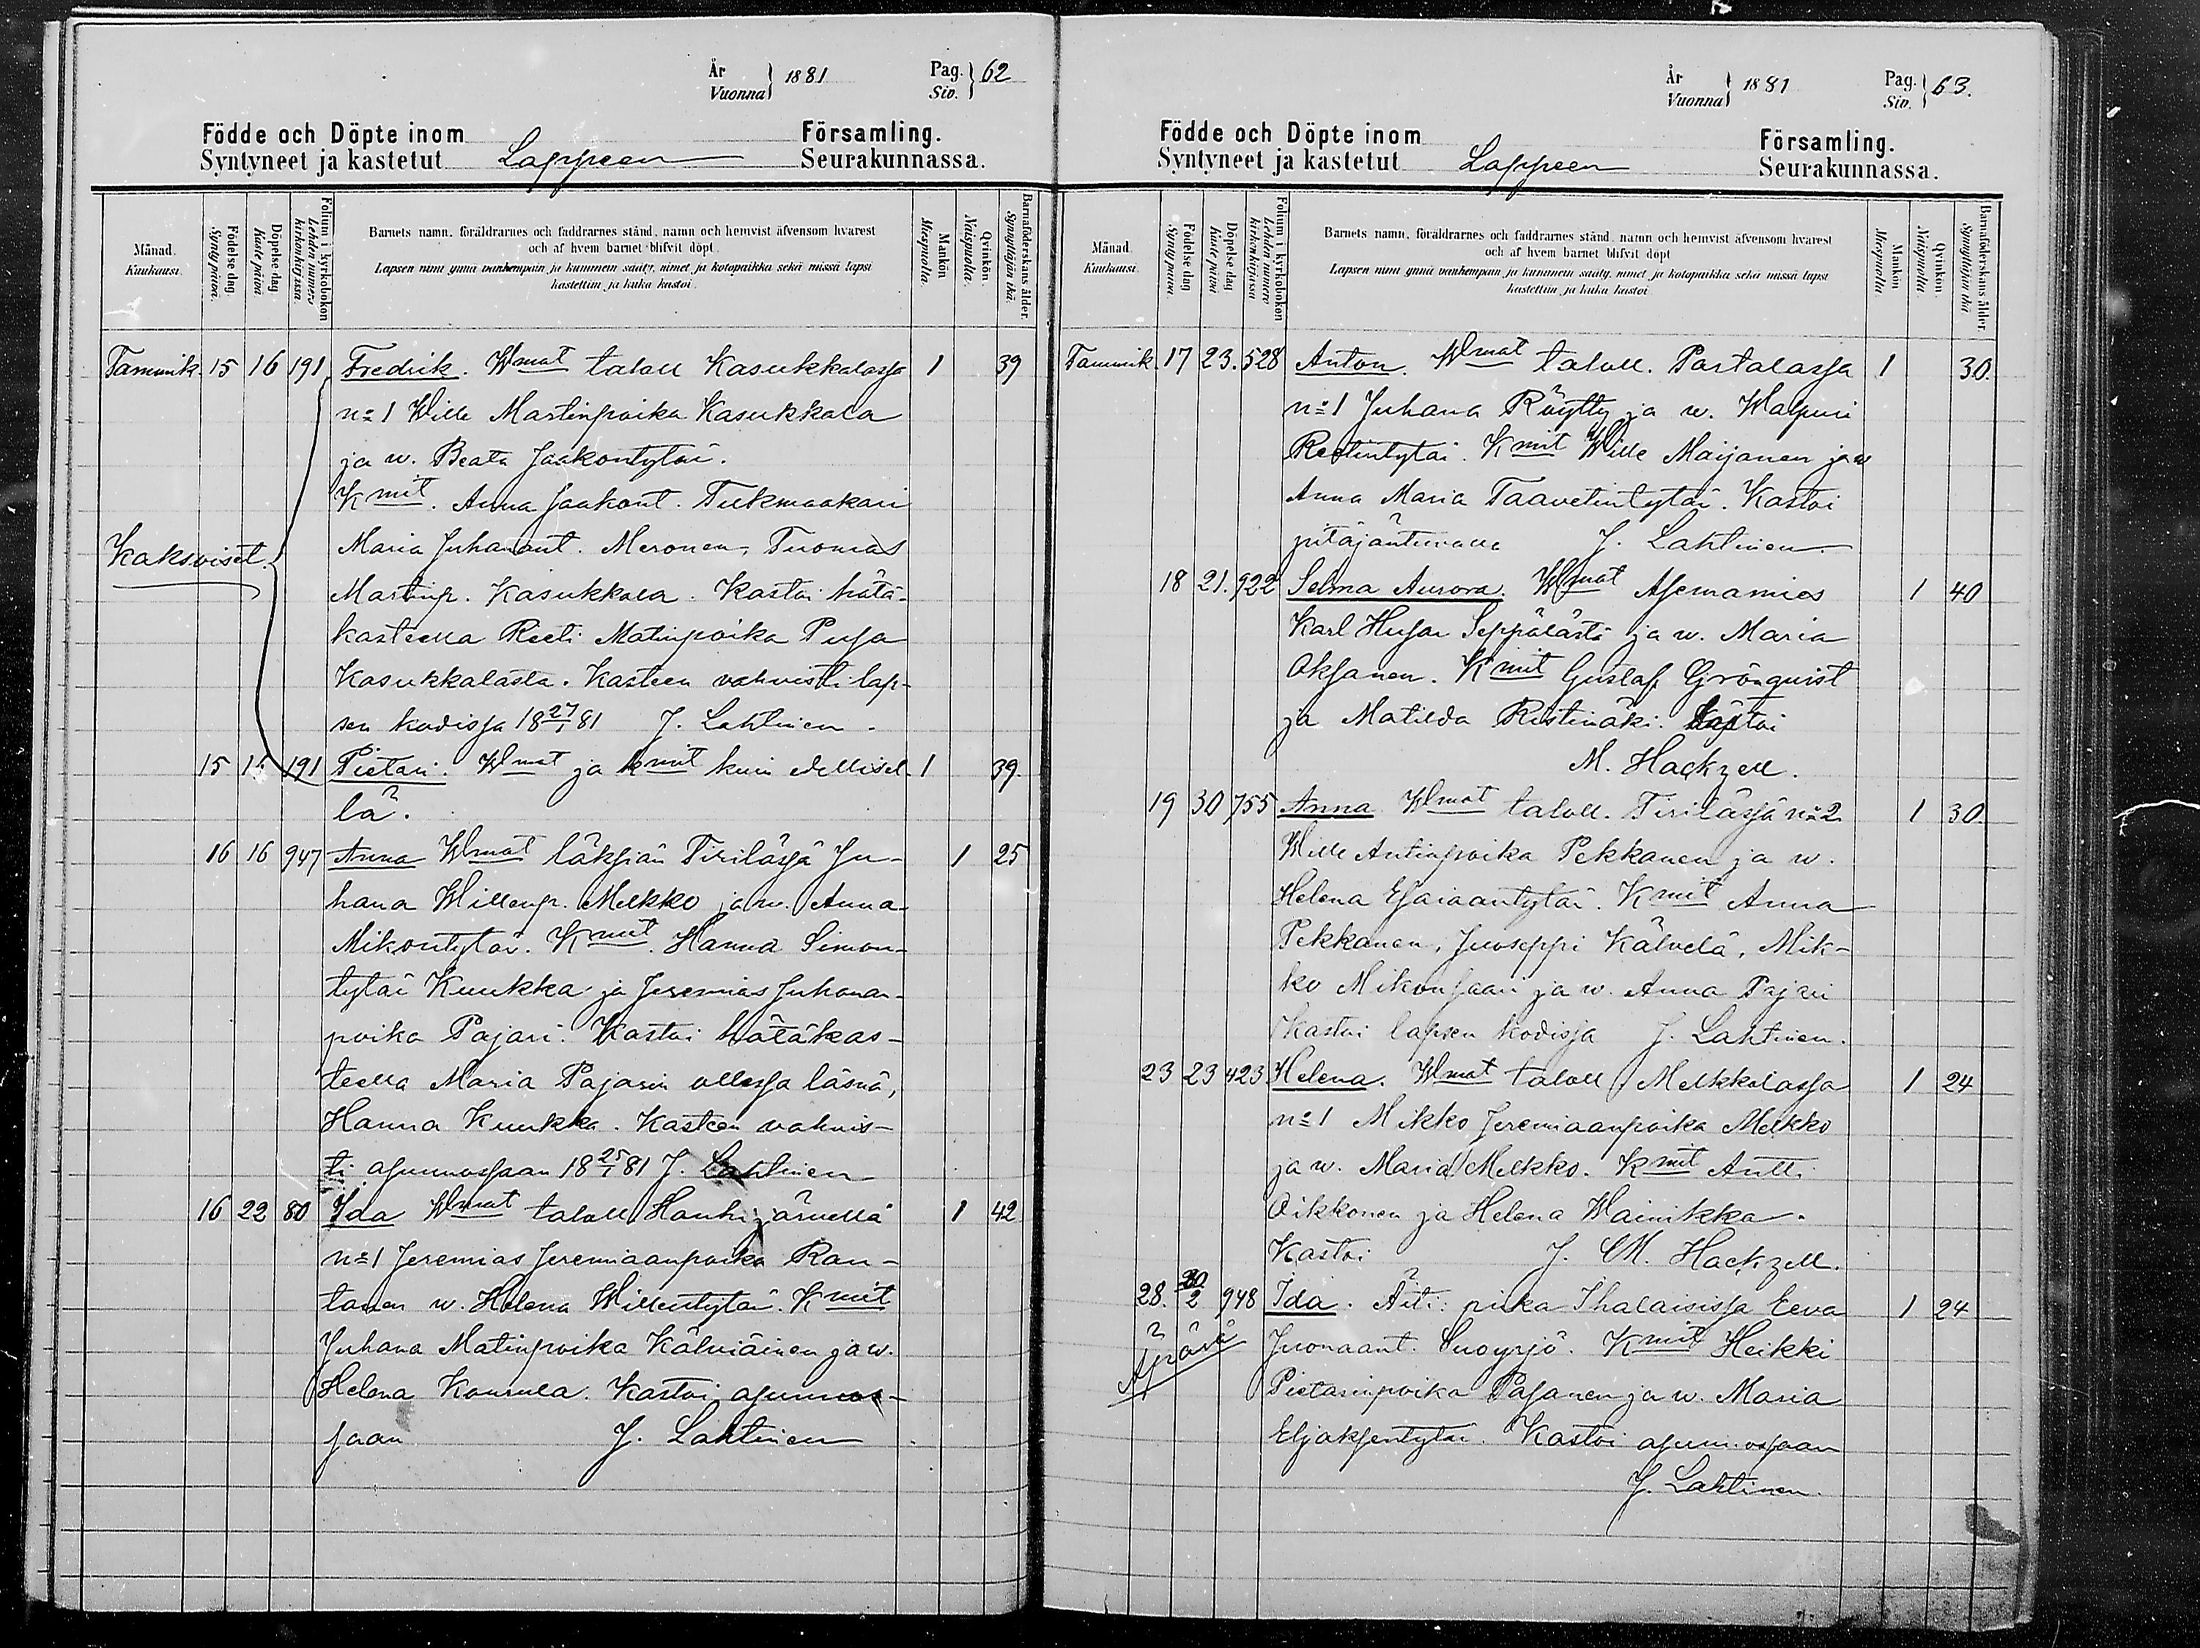 År
Vuonna } 1881 Pag.
Siv. } 62
Födde och Döpte inom Församling.
Syntyneet ja kastetut Lappeen Seurakunnassa.
Månad.
Kuukausi.
Födelse dag.
Synty päivä.
Döpelse dag
Kaste päivä
Folium i kyrkoboken
Lehden numero kirkonkirjassa.
Barnets namn, föräldrarnes och faddrarnes stånd, namn och hemvist äfvensom hvarest
och af hvem barnet blifvit döpt.
Lapsen nimi ynnä vanhempain ja kummein sääty, nimet ja kotopaikka sekä missä lapsi
kastettiin ja kuka kastoi.
Mankön
Miespuolta.
Qvinkön.
Naispuolta.
Barnaföderskans ålder.
Synnyttäjän ikä.
Tammik. 15 16 191 Fredrik. Wmat taloll Kasukkalassa 1 39
n:o 1 Wille Martinpoika Kasukkala
ja w. Beata Jaakontytär.
Kmit. Anna Jaakont. Tukmaakari
Maria Juhanant. Meronen, Tuomas
Kaksoiset.
Martinp. Kasukkala. Kastoi hätä-
kasteella Reeti Matinpoika Pusa
Kasukkalasta. Kasteen vahvisti lap-
sen kodissa 18 27/1 81 J. Lahtinen.
15 15 191 Pietari. Wmat ja kmit kuin edellisel- 1 39.
lä.
16 16 947 Anna Wmat läksiän Tirilässä Ju- 1 25
hana Willenp. Melkko ja w. Anna
Mikontytär. Kmit. Hanna Simon-
tytär Kuukka ja Jeremias Juhanan-
poika Pajari. Kastoi hätäkas-
teella Maria Pajarin ollessa läsnä,
Hanna Kuukka. Kasteen vahvis-
ti asunnossaan 18 25/1 81 J. Lahtinen
16 22 80 Ida Wmat taloll Hanhijärvellä 1 42
n:o 1 Jeremias Jeremiaanpoika Ran-
tanen w. Helena Willentytär. Kmit
Juhana Matinpoika Kälviäinen ja w.
Helena Kourula. Kastoi asunnos-
saan J. Lahtinen
År
Vuonna } 1881 Pag.
Siv. } 63.
Födde och Döpte inom Församling.
Syntyneet ja kastetut Lappeen Seurakunnassa.
Månad.
Kuukausi.
Födelse dag
Synty päivä.
Döpelse dag
Kaste päivä
Folium i kyrkoboken
Lehden numero kirkonkirjassa
Barnets namn, föräldrarnes och faddrarnes stånd, namn och hemvist äfvensom hvarest
och af hvem barnet blifvit döpt
Lapsen nimi ynnä vanhempain ja kummein sääty, nimet ja kotopaikka sekä missä lapsi
kastettiin ja kuka kastoi
Mankön
Miespuolta
Qvinkön.
Naispuolta.
Barnaföderskans ålder.
Synnyttäjän ikä
Tammik. 17 23. 528 Anton. Wmat taloll. Partalassa 1 30.
n:o 1 Juhana Röytty ja w. Walpuri
Reetintytär. Kmit Wille Maijanen ja w
Anna Maria Taavetintytär. Kastoi
pitäjäntuvalla J. Lahtinen.
18 21. 922 Selma Aurora. Wmat Asemamies 1 40
Karl Husar Seppälästä ja w. Maria
Oksanen. Kmit Gustaf Grönquist
ja Matilda Ristimäki. Kastoi
M. Hackzell.
19 30 755 Anna Wmat taloll. Tirilässä n:o 2 1 30.
Wille Antinpoika Pekkanen ja w.
Helena Esaiaantytär. Kmit Anna
Pekkanen, Juoseppi Kälvelä, Mik-
ko Mikonsaari ja w. Anna Pajari
Kastoi lapsen kodissa J. Lahtinen.
23 23 423 Helena. Wmat taloll Melkkolassa 1 24
n:o 1 Mikko Jeremiaanpoika Melkko
ja w. Maria Melkko. Kmit Antti
Oikkonen ja Helena Wainikka.
Kastoi J. M. Hackzell.
28. 20/2 948 Ida. Äiti: piika Ihalaisissa Eeva 1 24
Äpärä Juonaant. Suoyrjö. Kmit Heikki
Pietarinpoika Pasanen ja w. Maria
Eljaksentytär. Kastoi asunnossaan
J. Lahtinen.